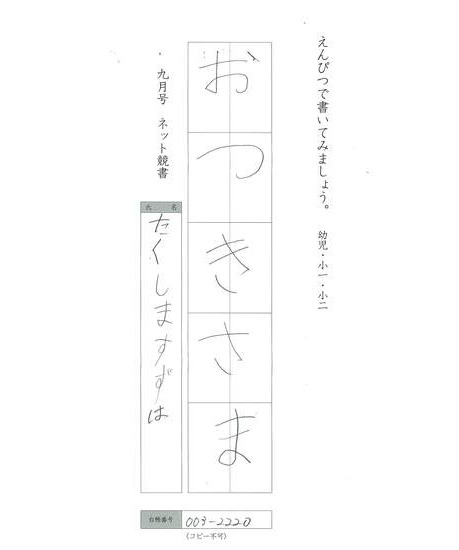 えんぴつで書いてみましょう。　幼児・小一・小二
おつきさま
・九月号　ネット競書
氏名
たくしますずは
台帳番号 003-2220
(コピー不可)